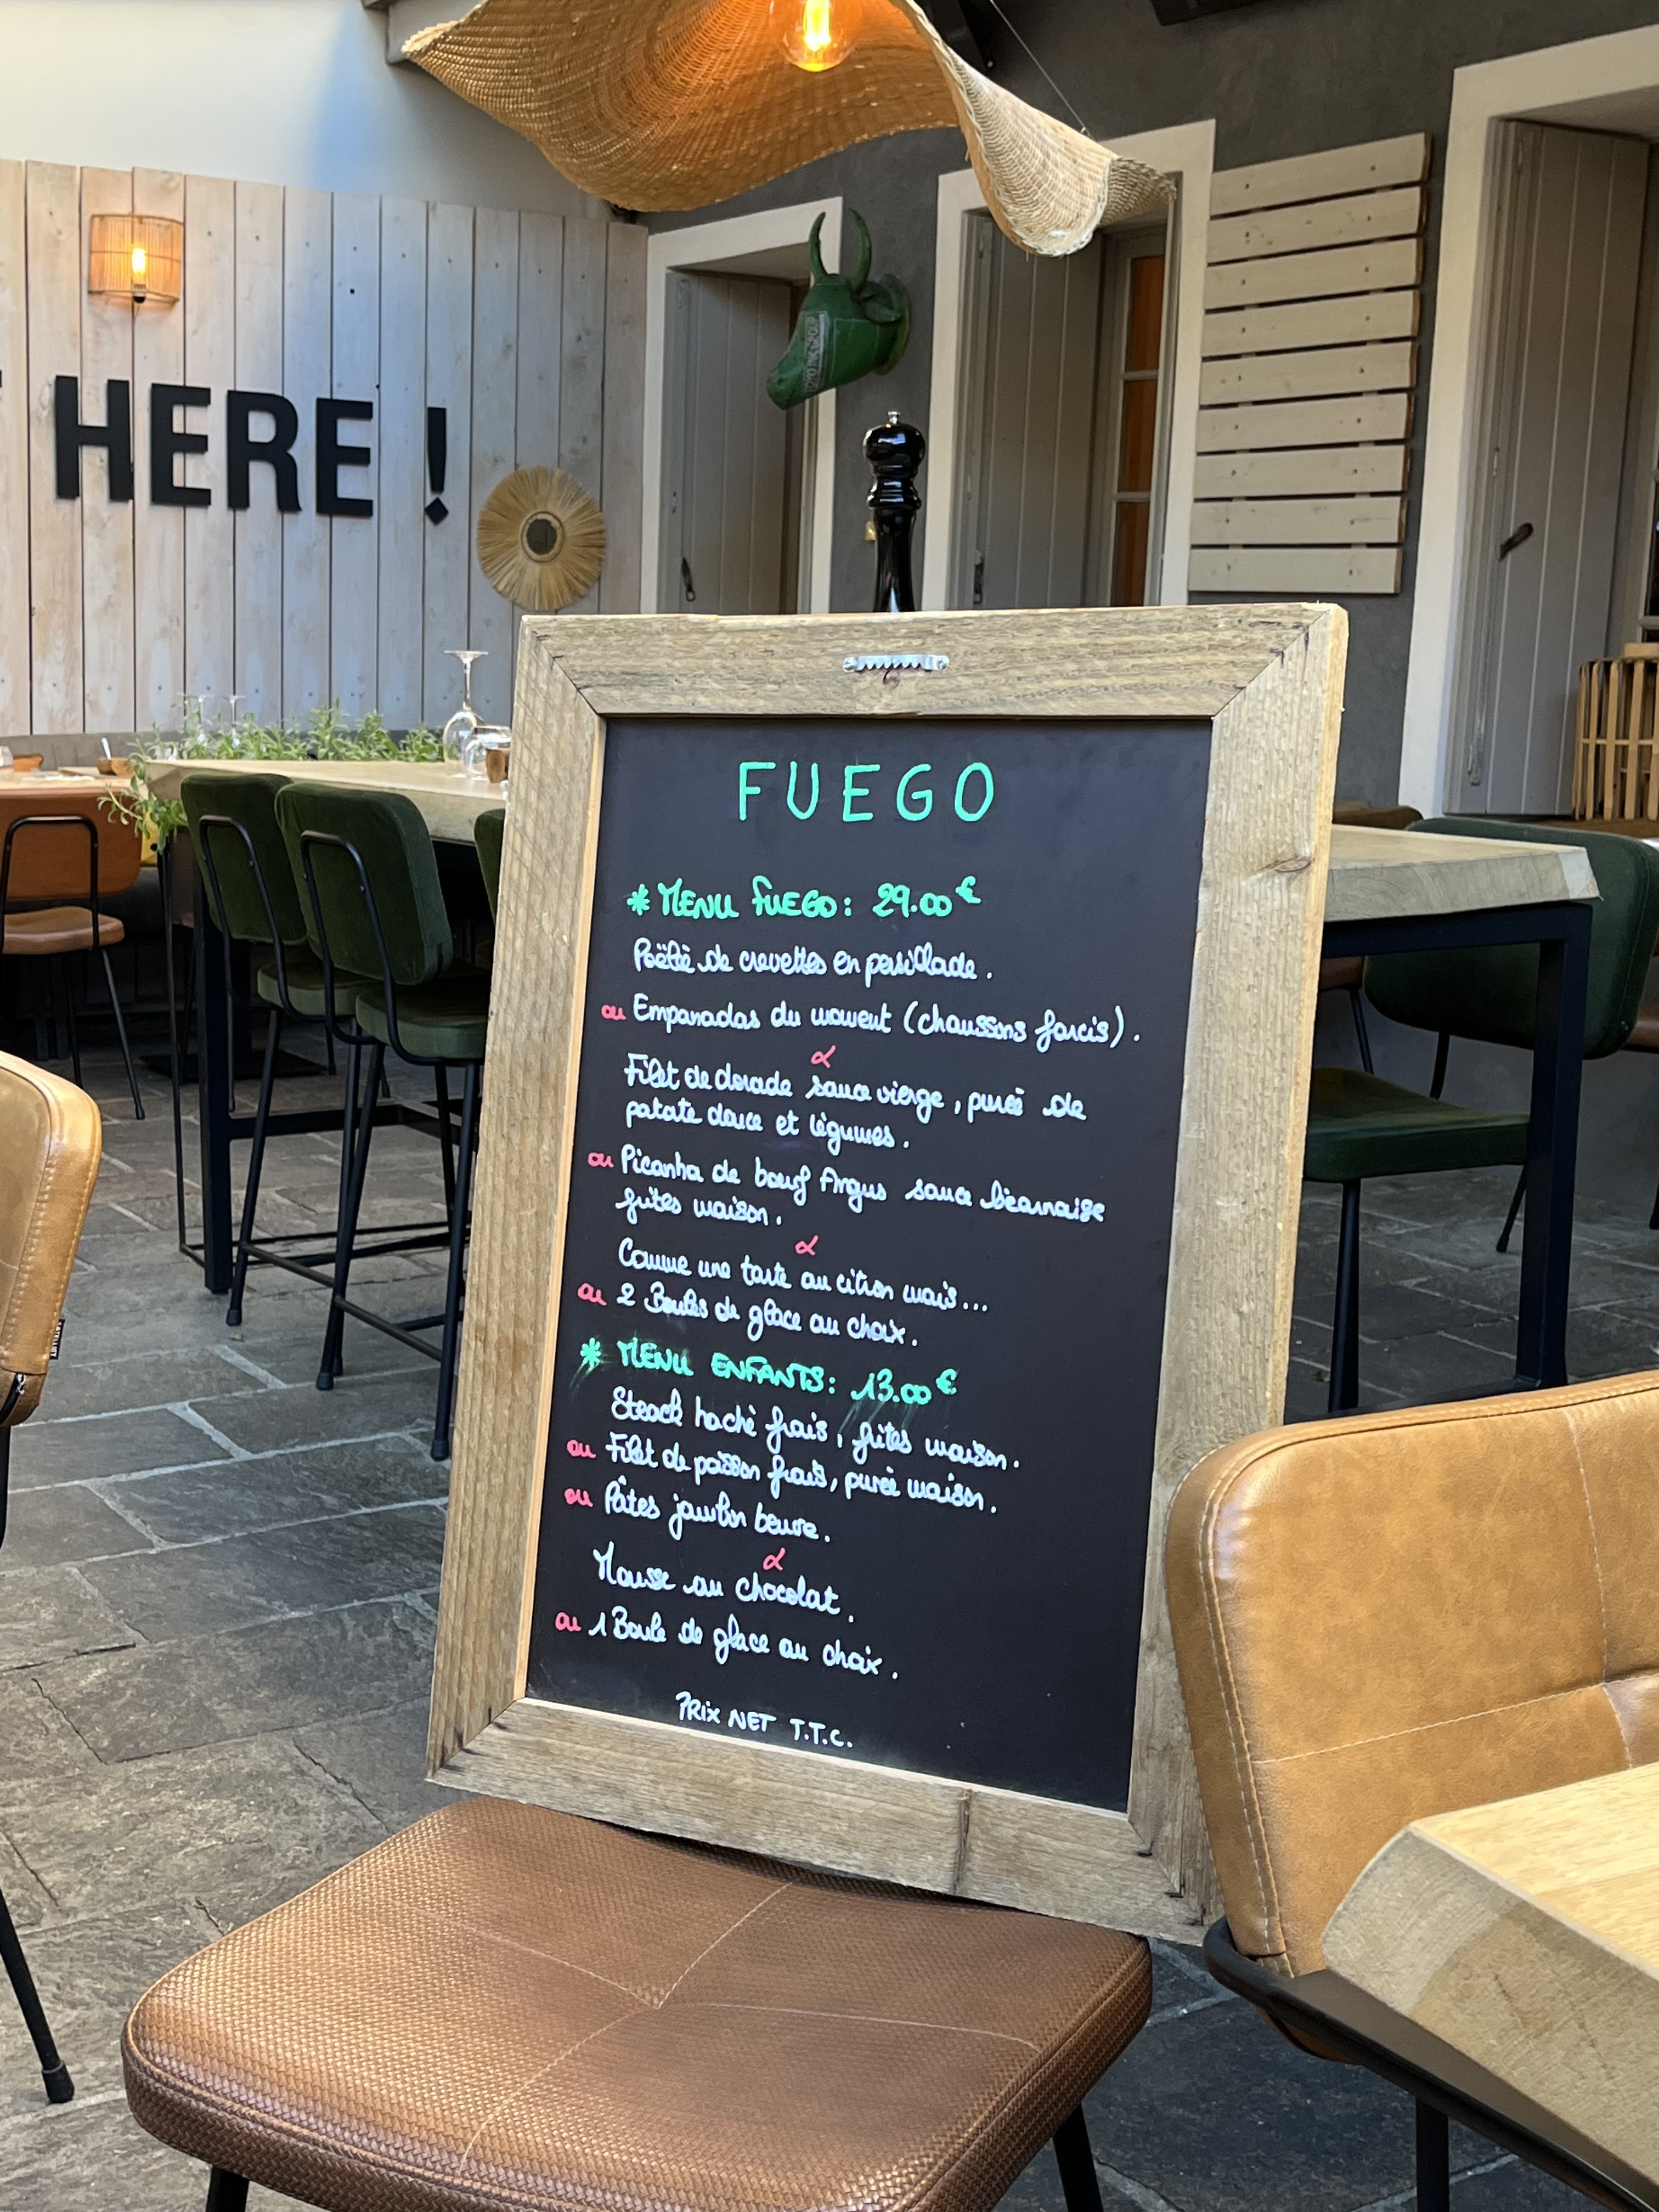 HERE !
FUEGO
* MENU FUEGO : 29.00 €
Poëlée de crevettes en persillade .
ou Empanadas du moment (chaussons farcis) .
Filet de dorade sauce vierge , purée de
patate douce et légumes .
ou Picanha de bœuf Angus sauce béarnaise
frites maison .
Comme une tarte au citron mais...
ou 2 Boules de glace au choix .
* MENU ENFANTS : 13.00 €
Steack haché frais , frites maison .
ou Filet de poisson frais, purée maison .
ou Pâtes jambon beurre .
Mousse au chocolat .
ou 1 Boule de glace au choix .
PRIX NET T.T.C.